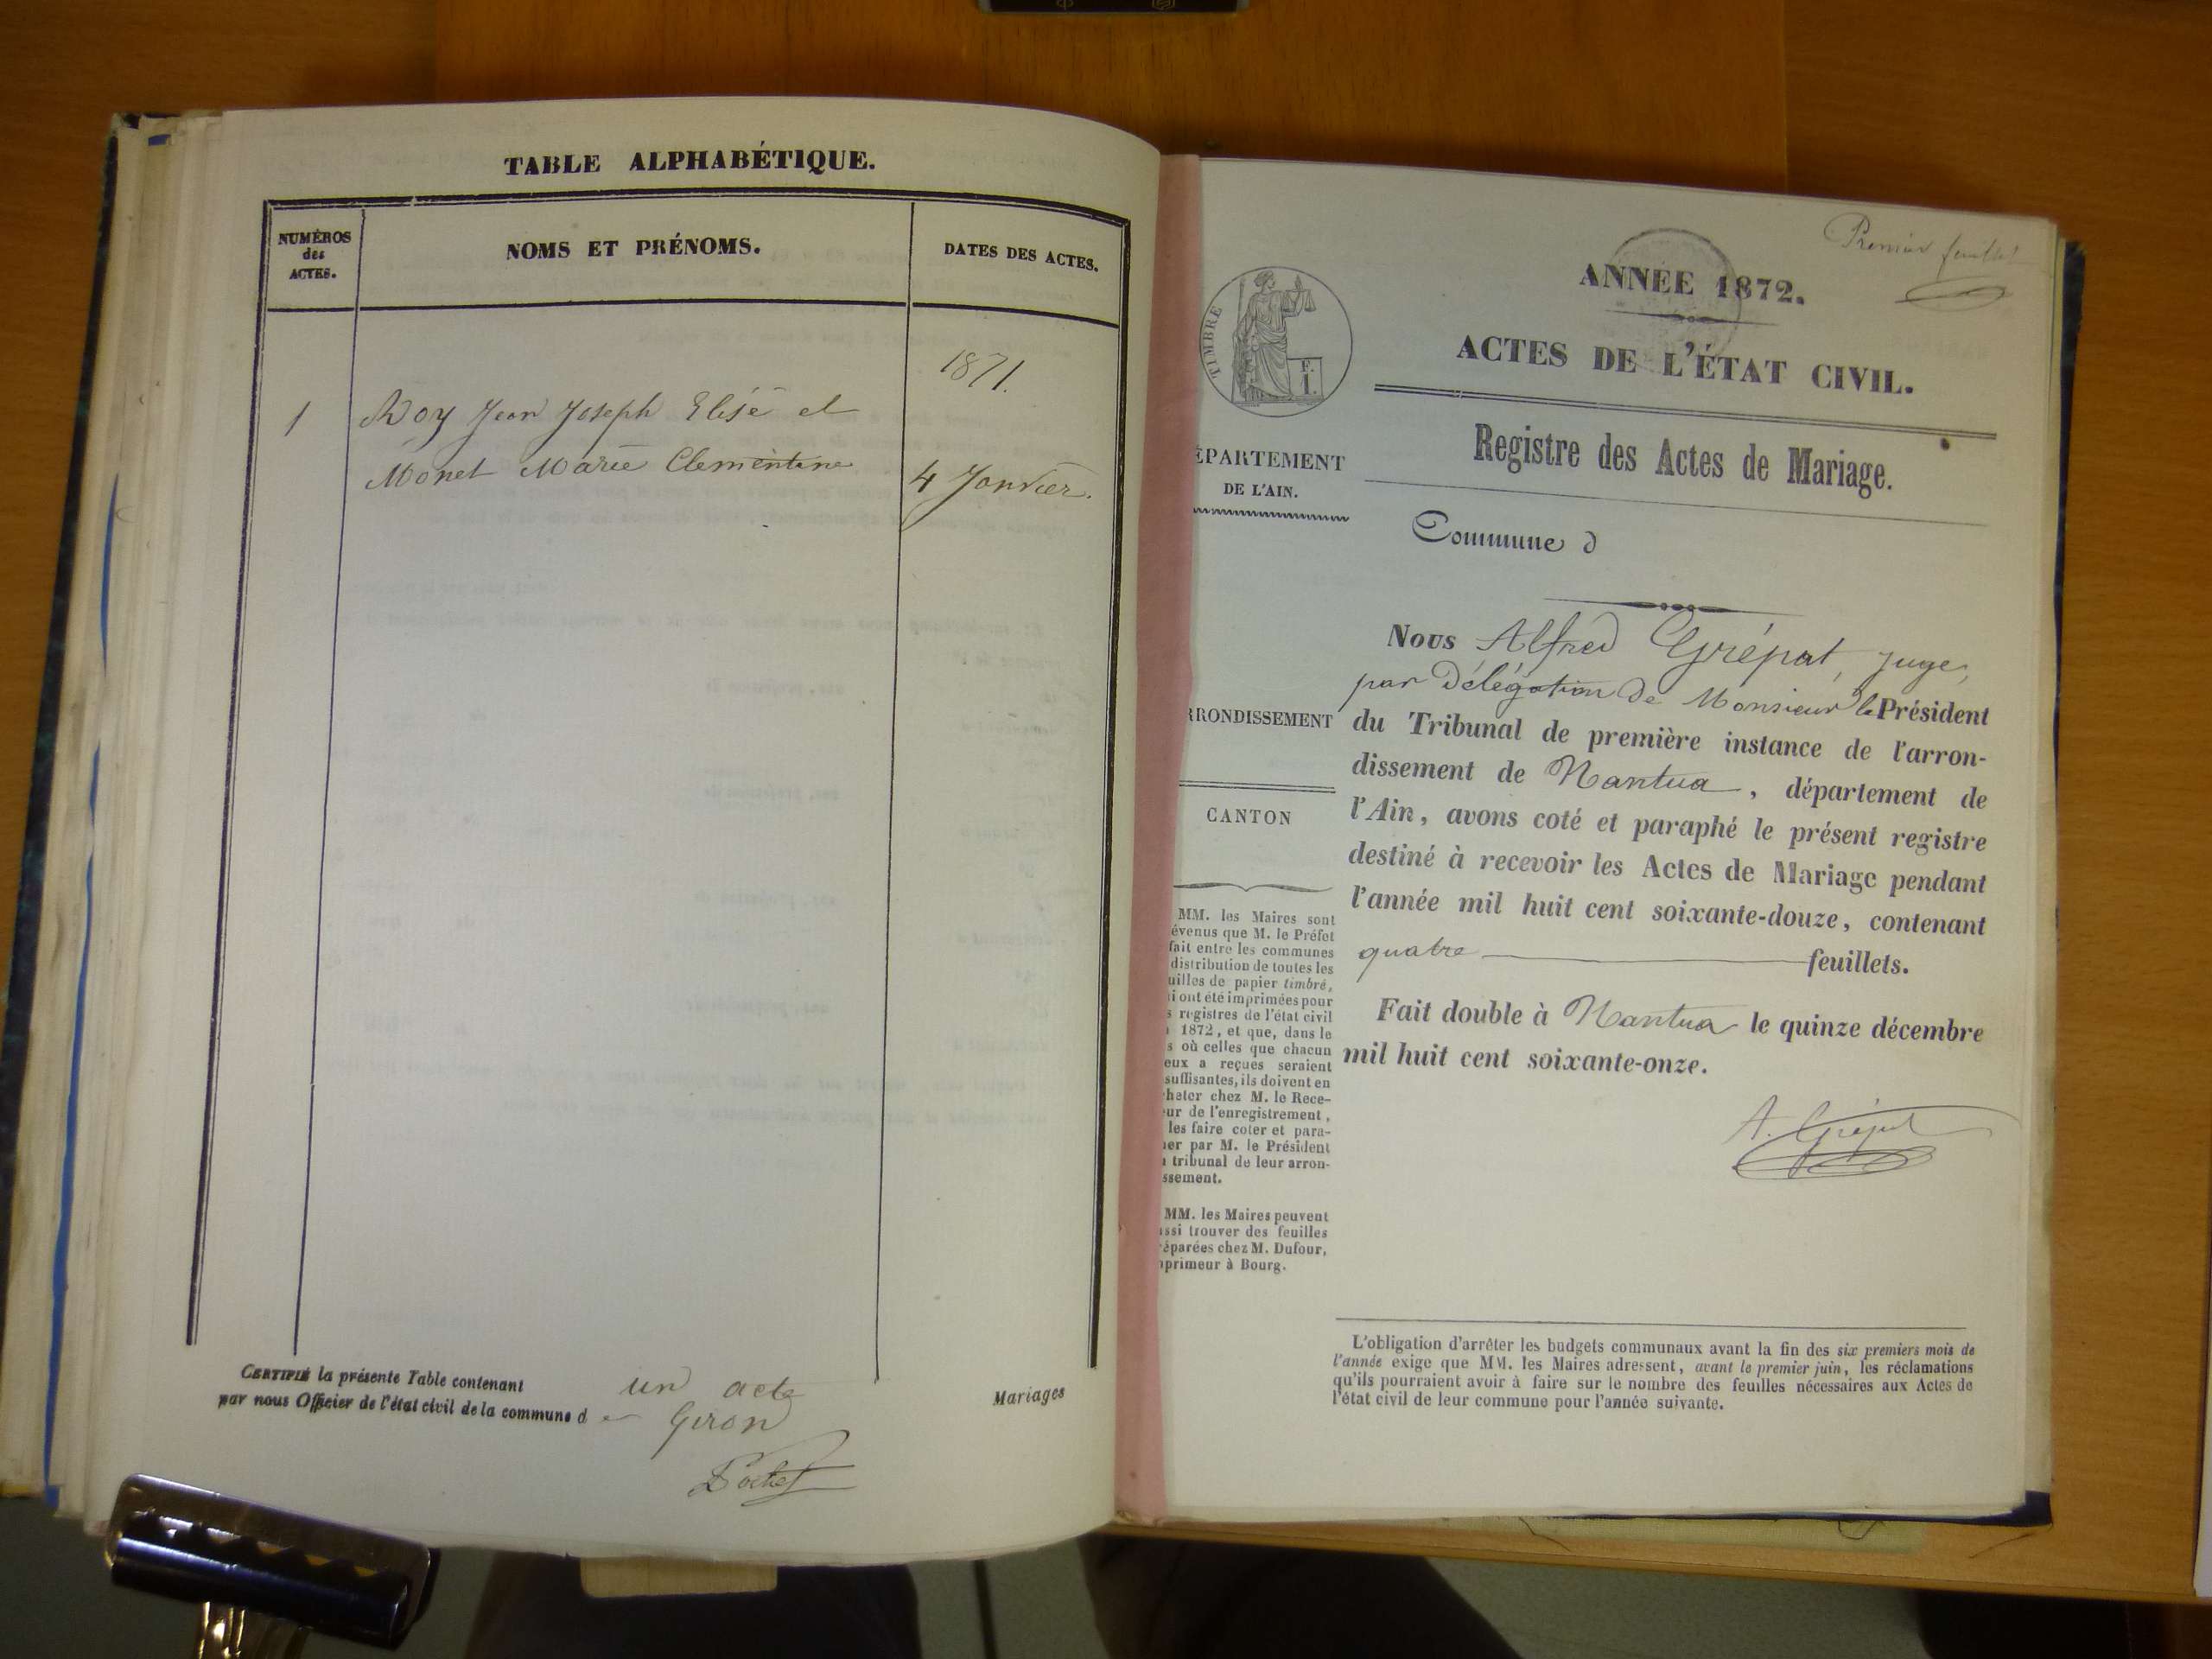 TABLE ALPHABÉTIQUE.
NUMÉROS
des
ACTES.
NOMS ET PRÉNOMS.
DATES DES ACTES.
1871.
1 Roy Jean Joseph Elisé et
Monet Marie Clementine 4 Janvier.
CERTIFIÉ la présente Table contenant un acte Mariages
par nous Officier de l'état civil de la commune de Giron
Premier feuillet
ANNÉE 1872.
ACTES DE L'ÉTAT CIVIL.
TIMBRE
F.
1.
Registre des Actes de Mariage.
ÉPARTEMENT
DE L'AIN.
Commune d
Nous Alfred Grépat, juge,
par Délégation de Monsieur le Président
RRONDISSEMENT
du Tribunal de première instance de l'arron-
dissement de Nantua, département de
l'Ain, avons coté et paraphé le présent registre
destiné à recevoir les Actes de Mariage pendant
l'année mil huit cent soixante-douze, contenant
quatre feuillets.
Fait double à Nantua le quinze décembre
mil huit cent soixante-onze.
A. Grépat
CANTON
MM. les Maires sont
évenus que M. le Préfet
fait entre les communes
distribution de toutes les
uilles de papier timbré,
i ont été imprimées pour
s registres de l'état civil
1872, et que, dans le
s où celles que chacun
eux a reçues seraient
suffisantes, ils doivent en
heter chez M. le Rece-
ur de l'enregistrement,
les faire coter et para-
er par M. le Président
tribunal de leur arron-
ssement.
MM. les Maires peuvent
ssi trouver des feuilles
éparées chez M. Dufour,
primeur à Bourg.
L'obligation d'arrêter les budgets communaux avant la fin des six premiers mois de
l'année exige que MM. les Maires adressent, avant le premier juin, les réclamations
qu'ils pourraient avoir à faire sur le nombre des feuilles nécessaires aux Actes de
l'état civil de leur commune pour l'année suivante.